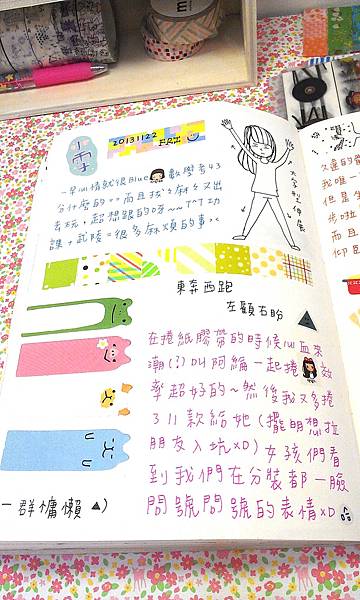 小雪
20131122
FRI
一早心情就很Blue 數學考43
分什麼的 而且找ㄋ麻ㄋ又出
去玩 超想跟的呀~~下ㄘ功
課+武陵=很多麻煩的事××
大字型伸展
東奔西跑
左顧右盼
在捲紙膠帶的時候心血來
潮(?)叫阿綸一起捲 效
率超好的~然後我又多捲
311款給她(擺明想拉
朋友入坑×D)女孩們看
到我們在分裝都一臉
問號問號的表情×D
一群慵懶